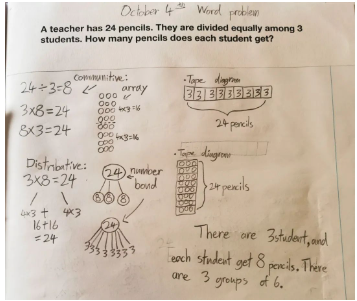 October 4th Word problem
A teacher has 24 pencils. They are divided equally among 3
students. How many pencils does each student get?
24÷3=8
3x8=24
8x3=24
Communitive:
array
4x3=16
4x3=16
• Tape diagram
3 3 3 3 3 3 3 3
24 pencils
Distributive:
3x8=24
4x3 + 4x3
16+16
=24
24
number
bond
8 8 8
24
3 3 3 3 3 3 3
• Tape diagram
24 pencils
There are 3 student, and
each student get 8 pencils. There
are 3 groups of 6.